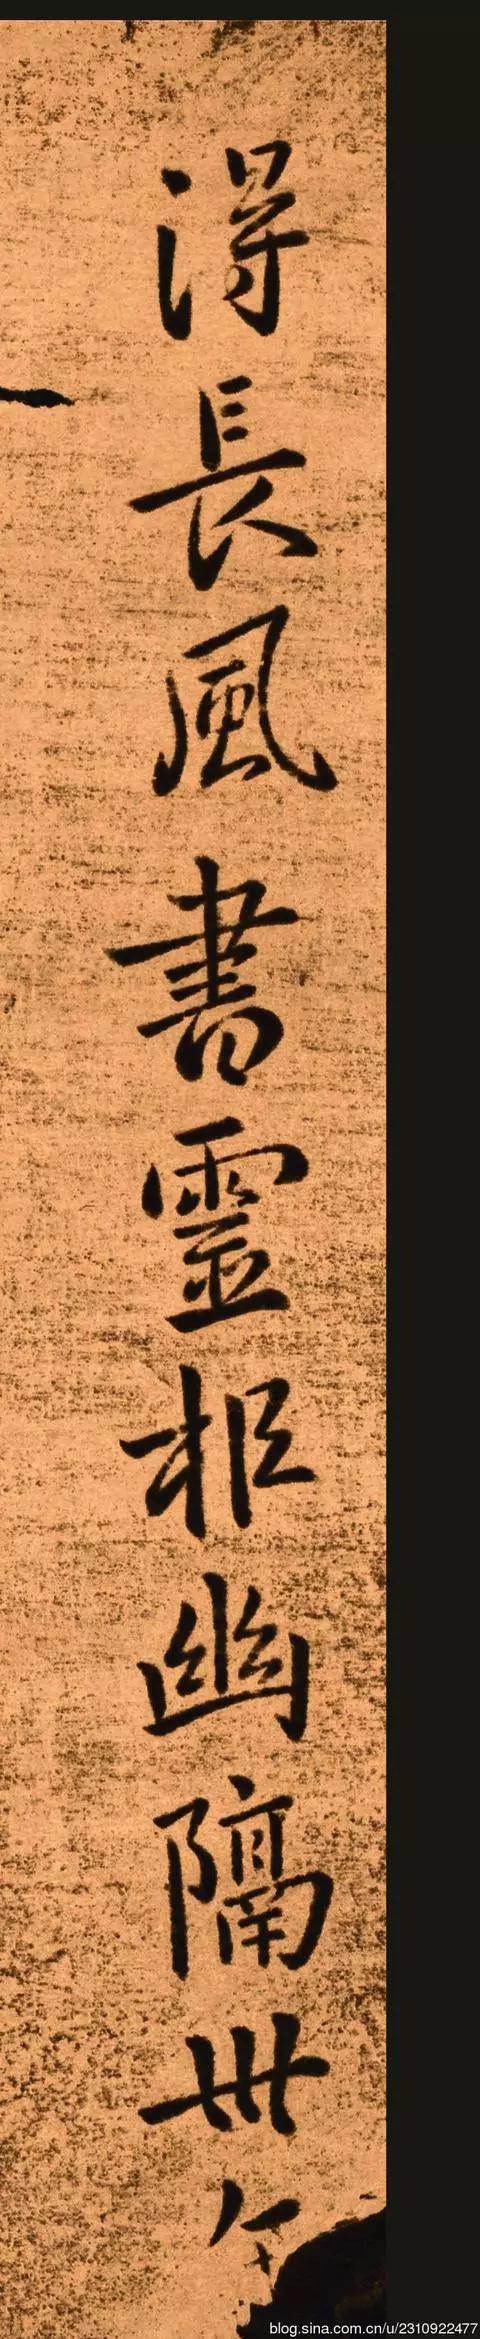 得長風書靈柩幽隔卅年
blog.sina.com.cn/u/2310922477